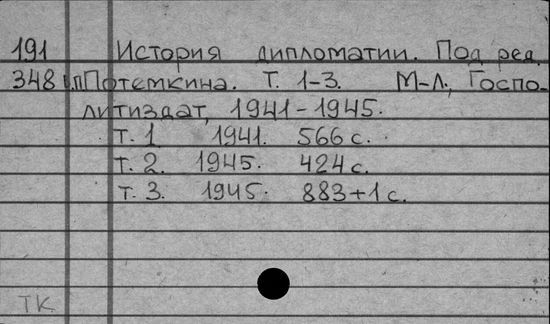 191 История дипломатии. Под ред.
348 В.П. Потемкина. Т. 1-3. М-Л., Госпо-
литиздат, 1941-1945.
т. 1 1941. 566 с.
т. 2. 1945. 424 с.
т. 3. 1945. 883+1 с.
ТК